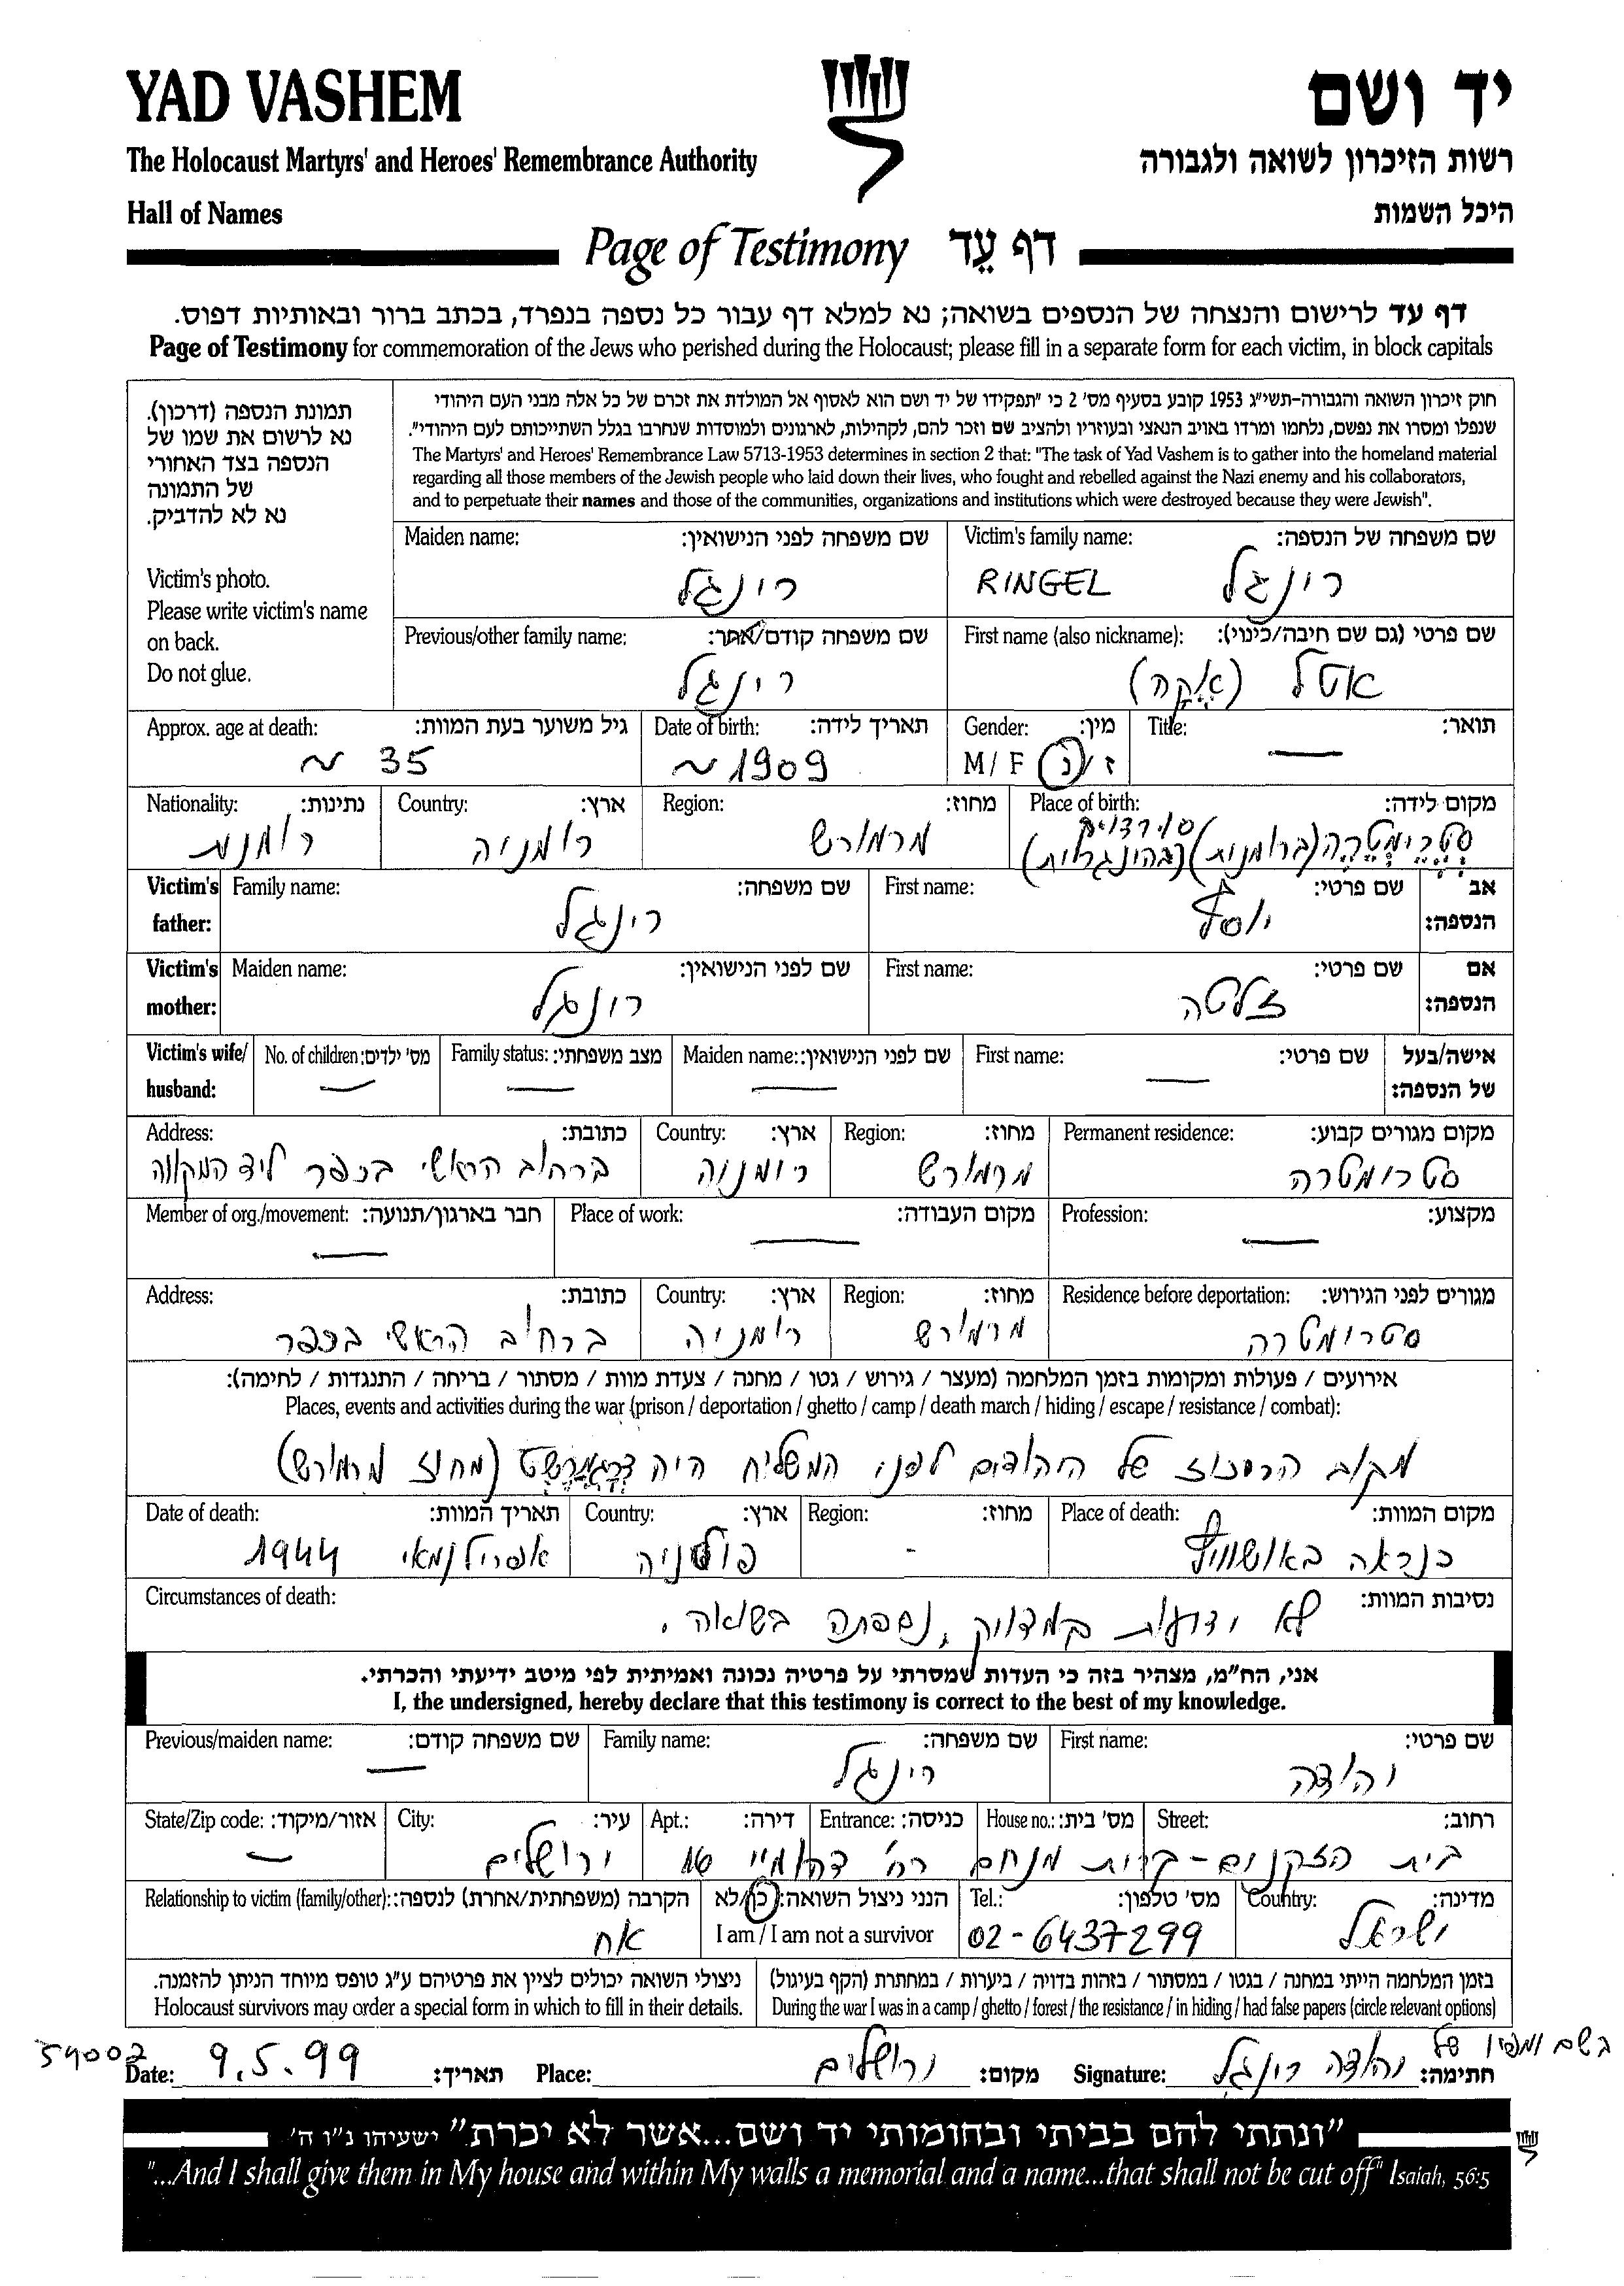 YAD VASHEM
יד ושם
The Holocaust Martyrs' and Heroes' Remembrance Authority
רשות הזיכרון לשואה ולגבורה
Hall of Names
היכל השמות
Page of Testimony דף עֵד
דף עד לרישום והנצחה של הנספים בשואה; נא למלא דף עבור כל נספה בנפרד, בכתב ברור ובאותיות דפוס.
Page of Testimony for commemoration of the Jews who perished during the Holocaust; please fill in a separate form for each victim, in block capitals
תמונת הנספה (דרכון).
נא לרשום את שמו של
הנספה בצד האחורי
של התמונה
נא לא להדביק.
Victim's photo.
Please write victim's name
on back.
Do not glue.
חוק זיכרון השואה והגבורה-תשי"ג 1953 קובע בסעיף מס' 2 כי "תפקידו של יד ושם הוא לאסוף אל המולדת את זכרם של כל אלה מבני העם היהודי
שנפלו ומסרו את נפשם, נלחמו ומרדו באויב הנאצי ובעוזריו ולהציב שם וזכר להם, לקהילות, לארגונים ולמוסדות שנחרבו בגלל השתייכותם לעם היהודי".
The Martyrs' and Heroes' Remembrance Law 5713-1953 determines in section 2 that: "The task of Yad Vashem is to gather into the homeland material
regarding all those members of the Jewish people who laid down their lives, who fought and rebelled against the Nazi enemy and his collaborators,
and to perpetuate their names and those of the communities, organizations and institutions which were destroyed because they were Jewish".
Maiden name: שם משפחה לפני הנישואין: Victim's family name: שם משפחה של הנספה:
רינגל RINGEL רינגל
Previous/other family name: שם משפחה קודם/אחר: First name (also nickname): שם פרטי (גם שם חיבה/כינוי):
רינגל אטל (אֶקָה)
Approx. age at death: גיל משוער בעת המוות: Date of birth: תאריך לידה: Gender: מין: Title: תואר:
~ 35 ~ 1909 M / F ז / נ —
Nationality: נתינות: Country: ארץ: Region: מחוז: Place of birth: מקום לידה:
רומנית רומניה מרמורש סטרימטרה (ברומנית) (בהונגרית)
Victim's father: Family name: שם משפחה: First name: שם פרטי: אב הנספה:
רינגל יוסף
Victim's mother: Maiden name: שם לפני הנישואין: First name: שם פרטי: אם הנספה:
רינגל זלטה
Victim's wife/ husband: No. of children: מס' ילדים: Family status: מצב משפחתי: Maiden name: שם לפני הנישואין: First name: שם פרטי: אישה/בעל של הנספה:
— — — —
Address: כתובת: Country: ארץ: Region: מחוז: Permanent residence: מקום מגורים קבוע:
ברחוב הראשי בכפר ליד המקווה רומניה מרמורש סטרימטרה
Member of org./movement: חבר בארגון/תנועה: Place of work: מקום העבודה: Profession: מקצוע:
— — —
Address: כתובת: Country: ארץ: Region: מחוז: Residence before deportation: מגורים לפני הגירוש:
ברחוב הראשי בכפר רומניה מרמורש סטרימטרה
אירועים / פעולות ומקומות בזמן המלחמה (מעצר / גירוש / גטו / מחנה / צעדת מוות / מסתור / בריחה / התנגדות / לחימה):
Places, events and activities during the war (prison / deportation / ghetto / camp / death march / hiding / escape / resistance / combat):
מקום הריכוז של היהודים לפני המשלוח היה דרגמרשט (מחוז מרמורש)
Date of death: תאריך המוות: Country: ארץ: Region: מחוז: Place of death: מקום המוות:
אפריל/מאי 1944 פולניה - כנראה באושוויץ
Circumstances of death: נסיבות המוות:
לא ידועות במדויק, נספתה בשואה.
אני, הח"מ, מצהיר בזה כי העדות שמסרתי על פרטיה נכונה ואמיתית לפי מיטב ידיעתי והכרתי.
I, the undersigned, hereby declare that this testimony is correct to the best of my knowledge.
Previous/maiden name: שם משפחה קודם: Family name: שם משפחה: First name: שם פרטי:
— רינגל יהודה
State/Zip code: אזור/מיקוד: City: עיר: Apt.: דירה: Entrance: כניסה: House no.: מס' בית: Street: רחוב:
— ירושלים בית הזקנים - קרית מנחם רח' דהומיי 16
Relationship to victim (family/other): הקרבה (משפחתית/אחרת) לנספה: הנני ניצול השואה: כן/לא Tel.: מס' טלפון: Country: מדינה:
אח I am / I am not a survivor 02-6437299 ישראל
ניצולי השואה יכולים לציין את פרטיהם ע"ג טופס מיוחד הניתן להזמנה.
Holocaust survivors may order a special form in which to fill in their details.
בזמן המלחמה הייתי במחנה / בגטו / במסתור / בזהות בדויה / ביערות / במחתרת (הקף בעיגול)
During the war I was in a camp / ghetto / forest / the resistance / in hiding / had false papers (circle relevant options)
54002 בשם ומפיו של
Date: 9.5.99 תאריך: Place: ירושלים מקום: Signature: יהודה רינגל חתימה:
"ונתתי להם בביתי ובחומותי יד ושם...אשר לא יכרת" ישעיהו נ"ו ה'
"...And I shall give them in My house and within My walls a memorial and a name...that shall not be cut off" Isaiah, 56:5